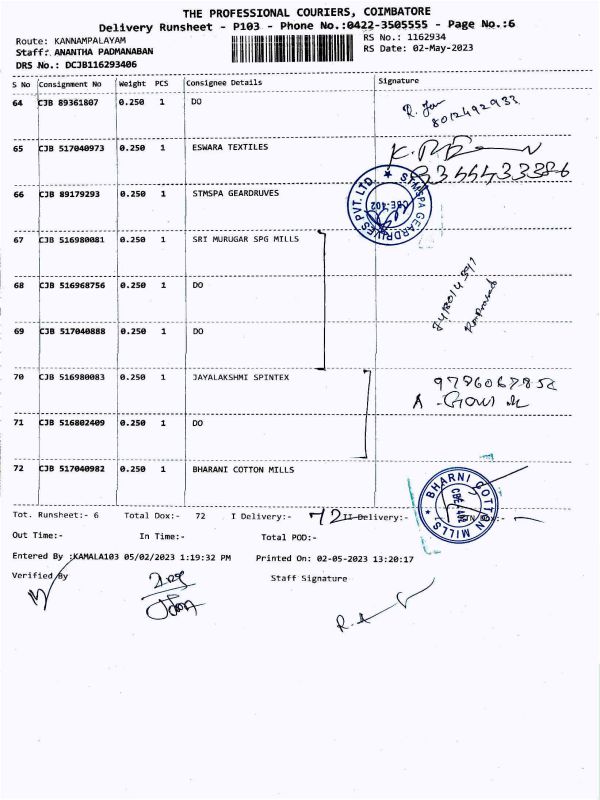 THE PROFESSIONAL COURIERS, COIMBATORE
Delivery Runsheet - P103 - Phone No.:0422-3505555 - Page No.:6
Route: KANNAMPALAYAM
RS No.: 1162934
Staff: ANANTHA PADMANABAN
RS Date: 02-May-2023
DRS No.: DCJB116293406
S No Consignment No Weight PCS Consignee Details Signature
64 CJB 89361807 0.250 1 DO
8012492933
65 CJB 517040973 0.250 1 ESWARA TEXTILES
66 CJB 89179293 0.250 1 STMSPA GEARDRUVES
STMSPA GEARDRIVES PVT. LTD.
CBE-402
67 CJB 516980081 0.250 1 SRI MURUGAR SPG MILLS
68 CJB 516968756 0.250 1 DO
69 CJB 517040888 0.250 1 DO
70 CJB 516980083 0.250 1 JAYALAKSHMI SPINTEX
71 CJB 516802409 0.250 1 DO
72 CJB 517040982 0.250 1 BHARANI COTTON MILLS
BHARNI COTTON MILLS
CBE-402
Tot. Runsheet:- 6 Total Dox:- 72 I Delivery:- 72 II Delivery:-
Out Time:- In Time:- Total POD:-
Entered By :KAMALA103 05/02/2023 1:19:32 PM Printed On: 02-05-2023 13:20:17
Verified By Staff Signature